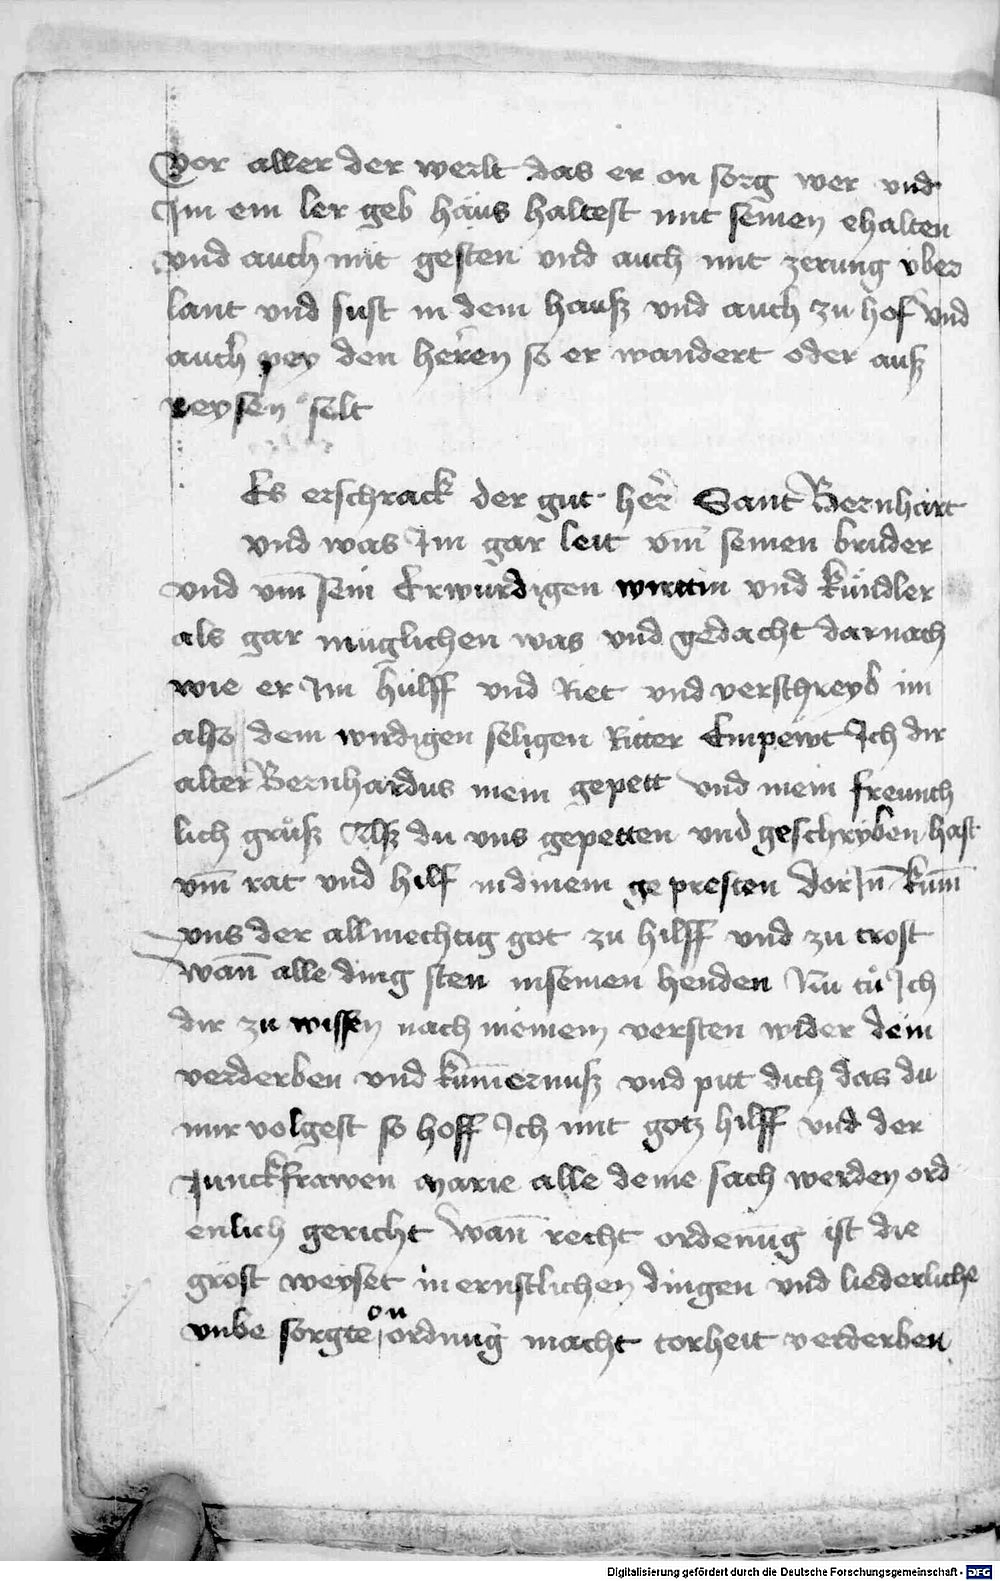 Vor aller der werlt das er on sorg wer vnd
Im ein ler geb haus haltest mit seinen ehalten
vnd auch mit gesten vnd auch mit zerung vber
lant vnd sust in dem hausz vnd auch zu hof vnd
auch pey den heren so er wandert oder ausz
reysen solt
Es erschrack der gut her Sant Bernhart
vnd was Im gar leit vm̄ seinen bruder
vnd vm̄ sein Erwurdigen wirttin vnd kündler
als gar müglichen was vnd gedacht darnach
wie er Im hülff vnd Riet vnd verschreyb im
also dem wirdigen seligen Ritter Empewt Ich dir
alter Bernhardus mein gepett vnd mein freunth
lich grůsz Alsz du vns gepetten vnd geschryben hast
vm̄ rat vnd hilf in dinem gepresten dor In̄ kum̄
vns der allmechtig got zu hilff vnd zu trost
wan̄ alle ding sten in seinen henden Nu tů Ich
dir zu wissen nach meinem versten wider dein
verderben vnd kūmernusz vnd put dich das du
mir volgest so hoff Ich mit gotz hilff vnd der
Junckfrawen marie alle deine sach werden ord
enlich gericht wan̄ recht ordenūg ist die
gröst weyset in ernstlichen dingen vnd liederliche
vnbesorgte on ordnūg macht torheit verderben
Digitalisierung gefördert durch die Deutsche Forschungsgemeinschaft - DFG